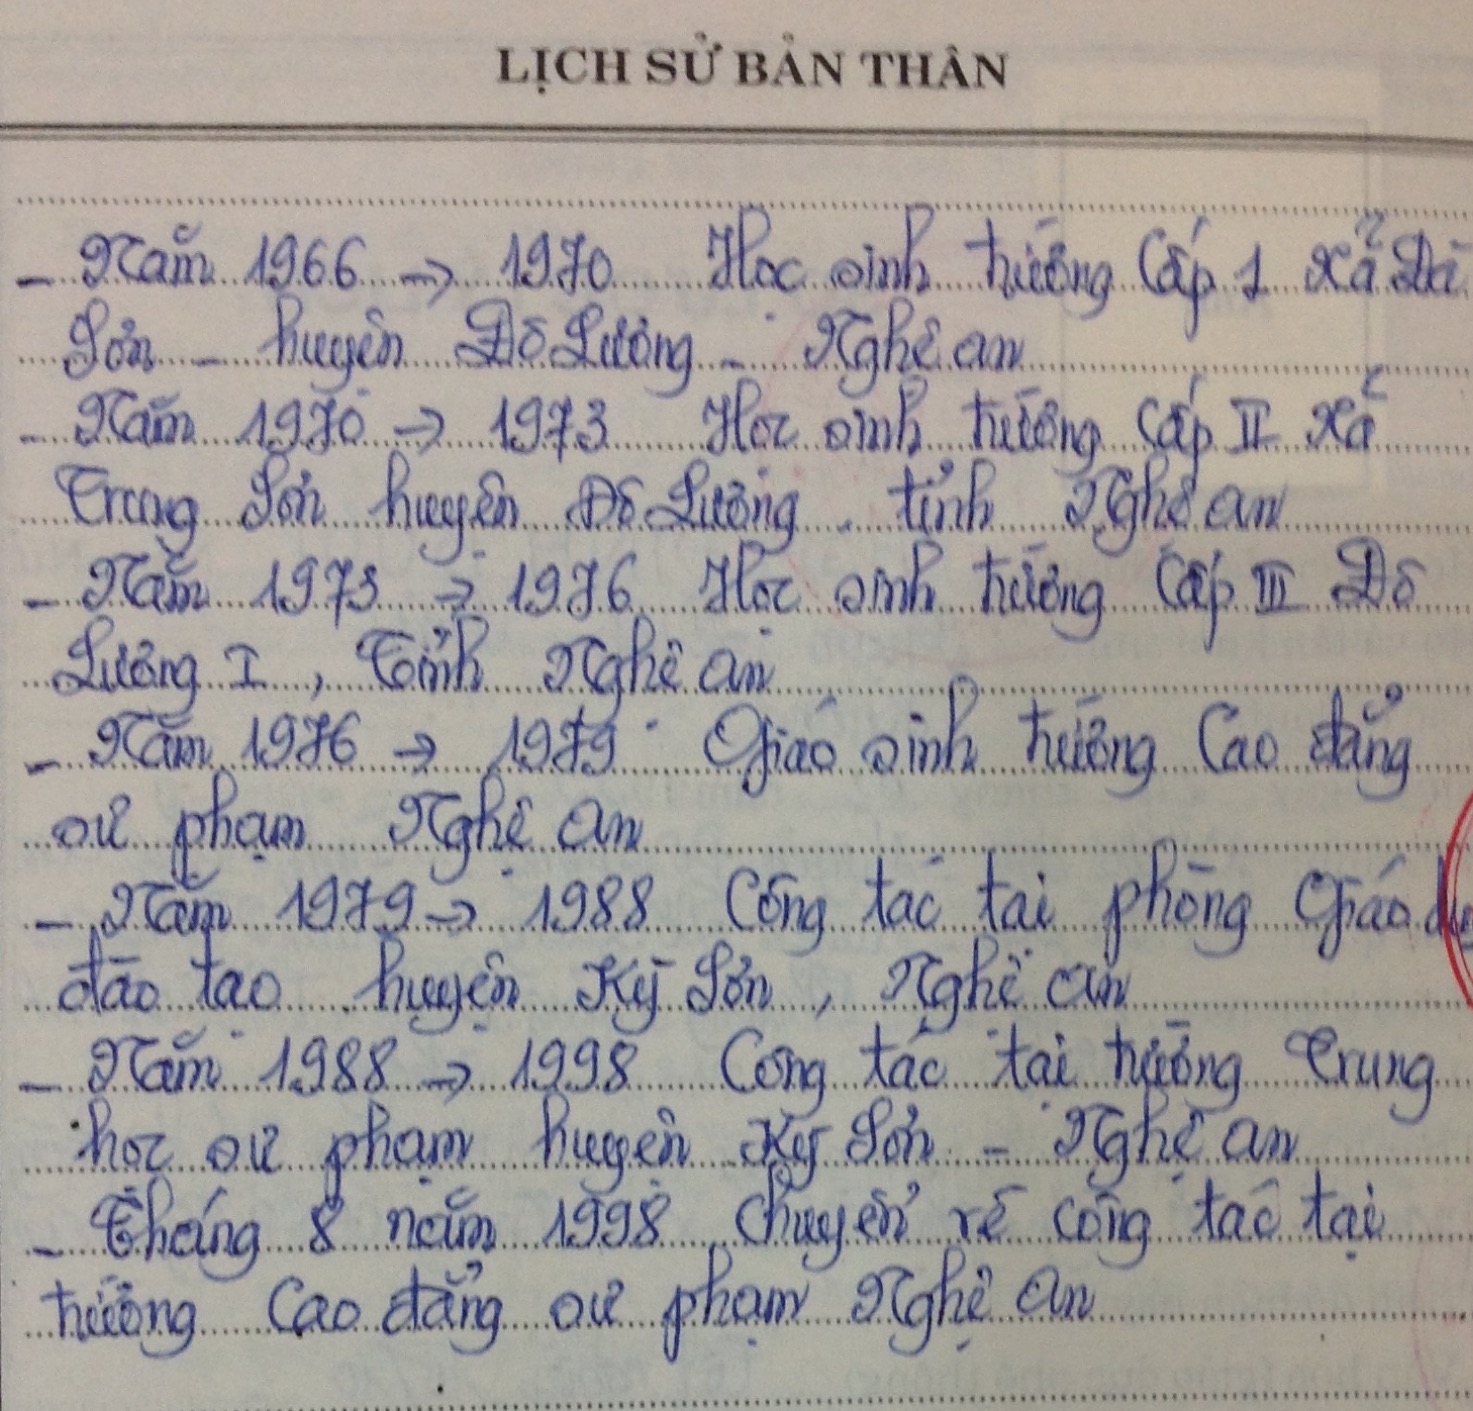 LỊCH SỬ BẢN THÂN
- Năm 1966 → 1970 Học sinh trường Cấp 1 xã Đà
Sơn - huyện Đô Lương - Nghệ an
- Năm 1970 → 1973 Học sinh trường Cấp II xã
Trung Sơn huyện Đô Lương, tỉnh Nghệ an
- Năm 1973 → 1976 Học sinh trường Cấp III Đô
Lương I, Tỉnh Nghệ an
- Năm 1976 → 1979 Giáo sinh trường Cao đẳng
sư phạm Nghệ An
- Năm 1979 → 1988 Công tác tại phòng Giáo
đào tạo huyện Kỳ Sơn, Nghệ An
- Năm 1988 → 1998 Công tác tại trường Trung
học sư phạm huyện Kỳ Sơn - Nghệ an
- Tháng 8 năm 1998 chuyển về công tác tại
trường Cao đẳng sư phạm Nghệ An